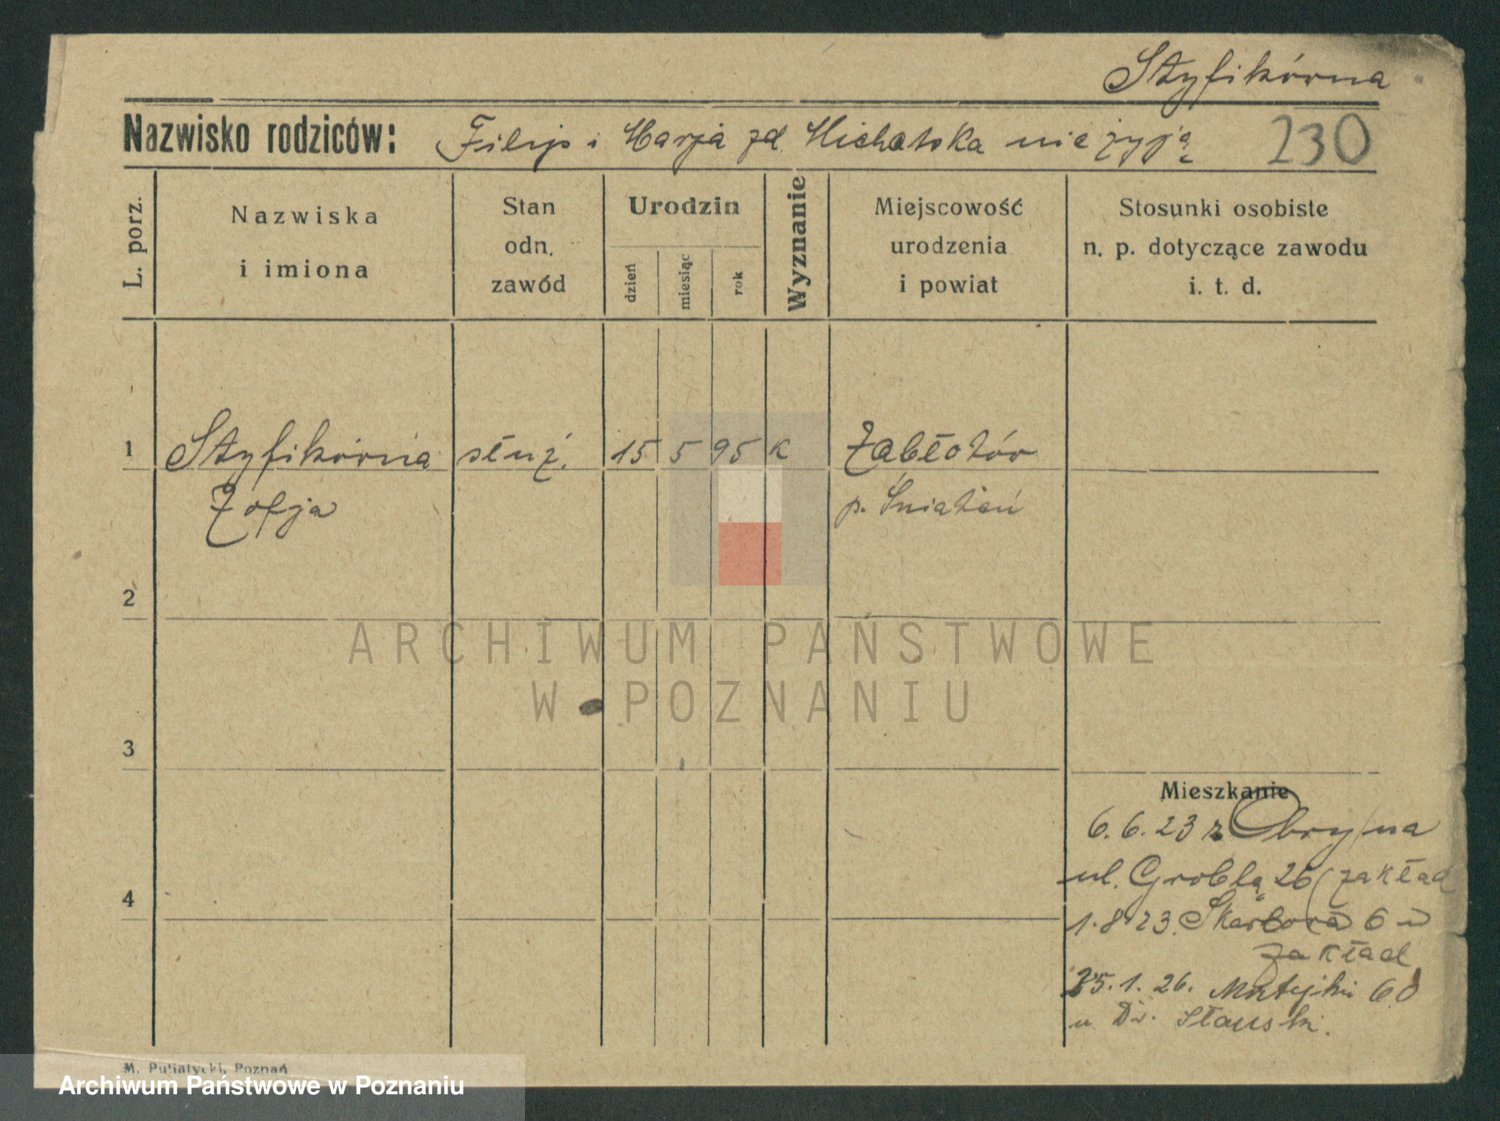 Styfikórna
Nazwisko rodziców: Filip i Marja zd. Michalska nie żyją 230
L. porz.
Nazwiska
i imiona
Stan
odn.
zawód
Urodzin
dzień
miesiąc
rok
Wyznanie
Miejscowość
urodzenia
i powiat
Stosunki osobiste
n. p. dotyczące zawodu
i. t. d.
1 Styfikórna służ. 15 5 95 k Zabłotów
Zofja p. Śniatań
2
ARCHIWUM PAŃSTWOWE
W POZNANIU
3
Mieszkanie
6.6.23 z
ul. Groblą 26 (zakład
4
1.8.23. Skarbora 6 u
zakład
25.1.26. Matejki 60
u Dr. Słauski.
M. Putiatycki, Poznań
Archiwum Państwowe w Poznaniu